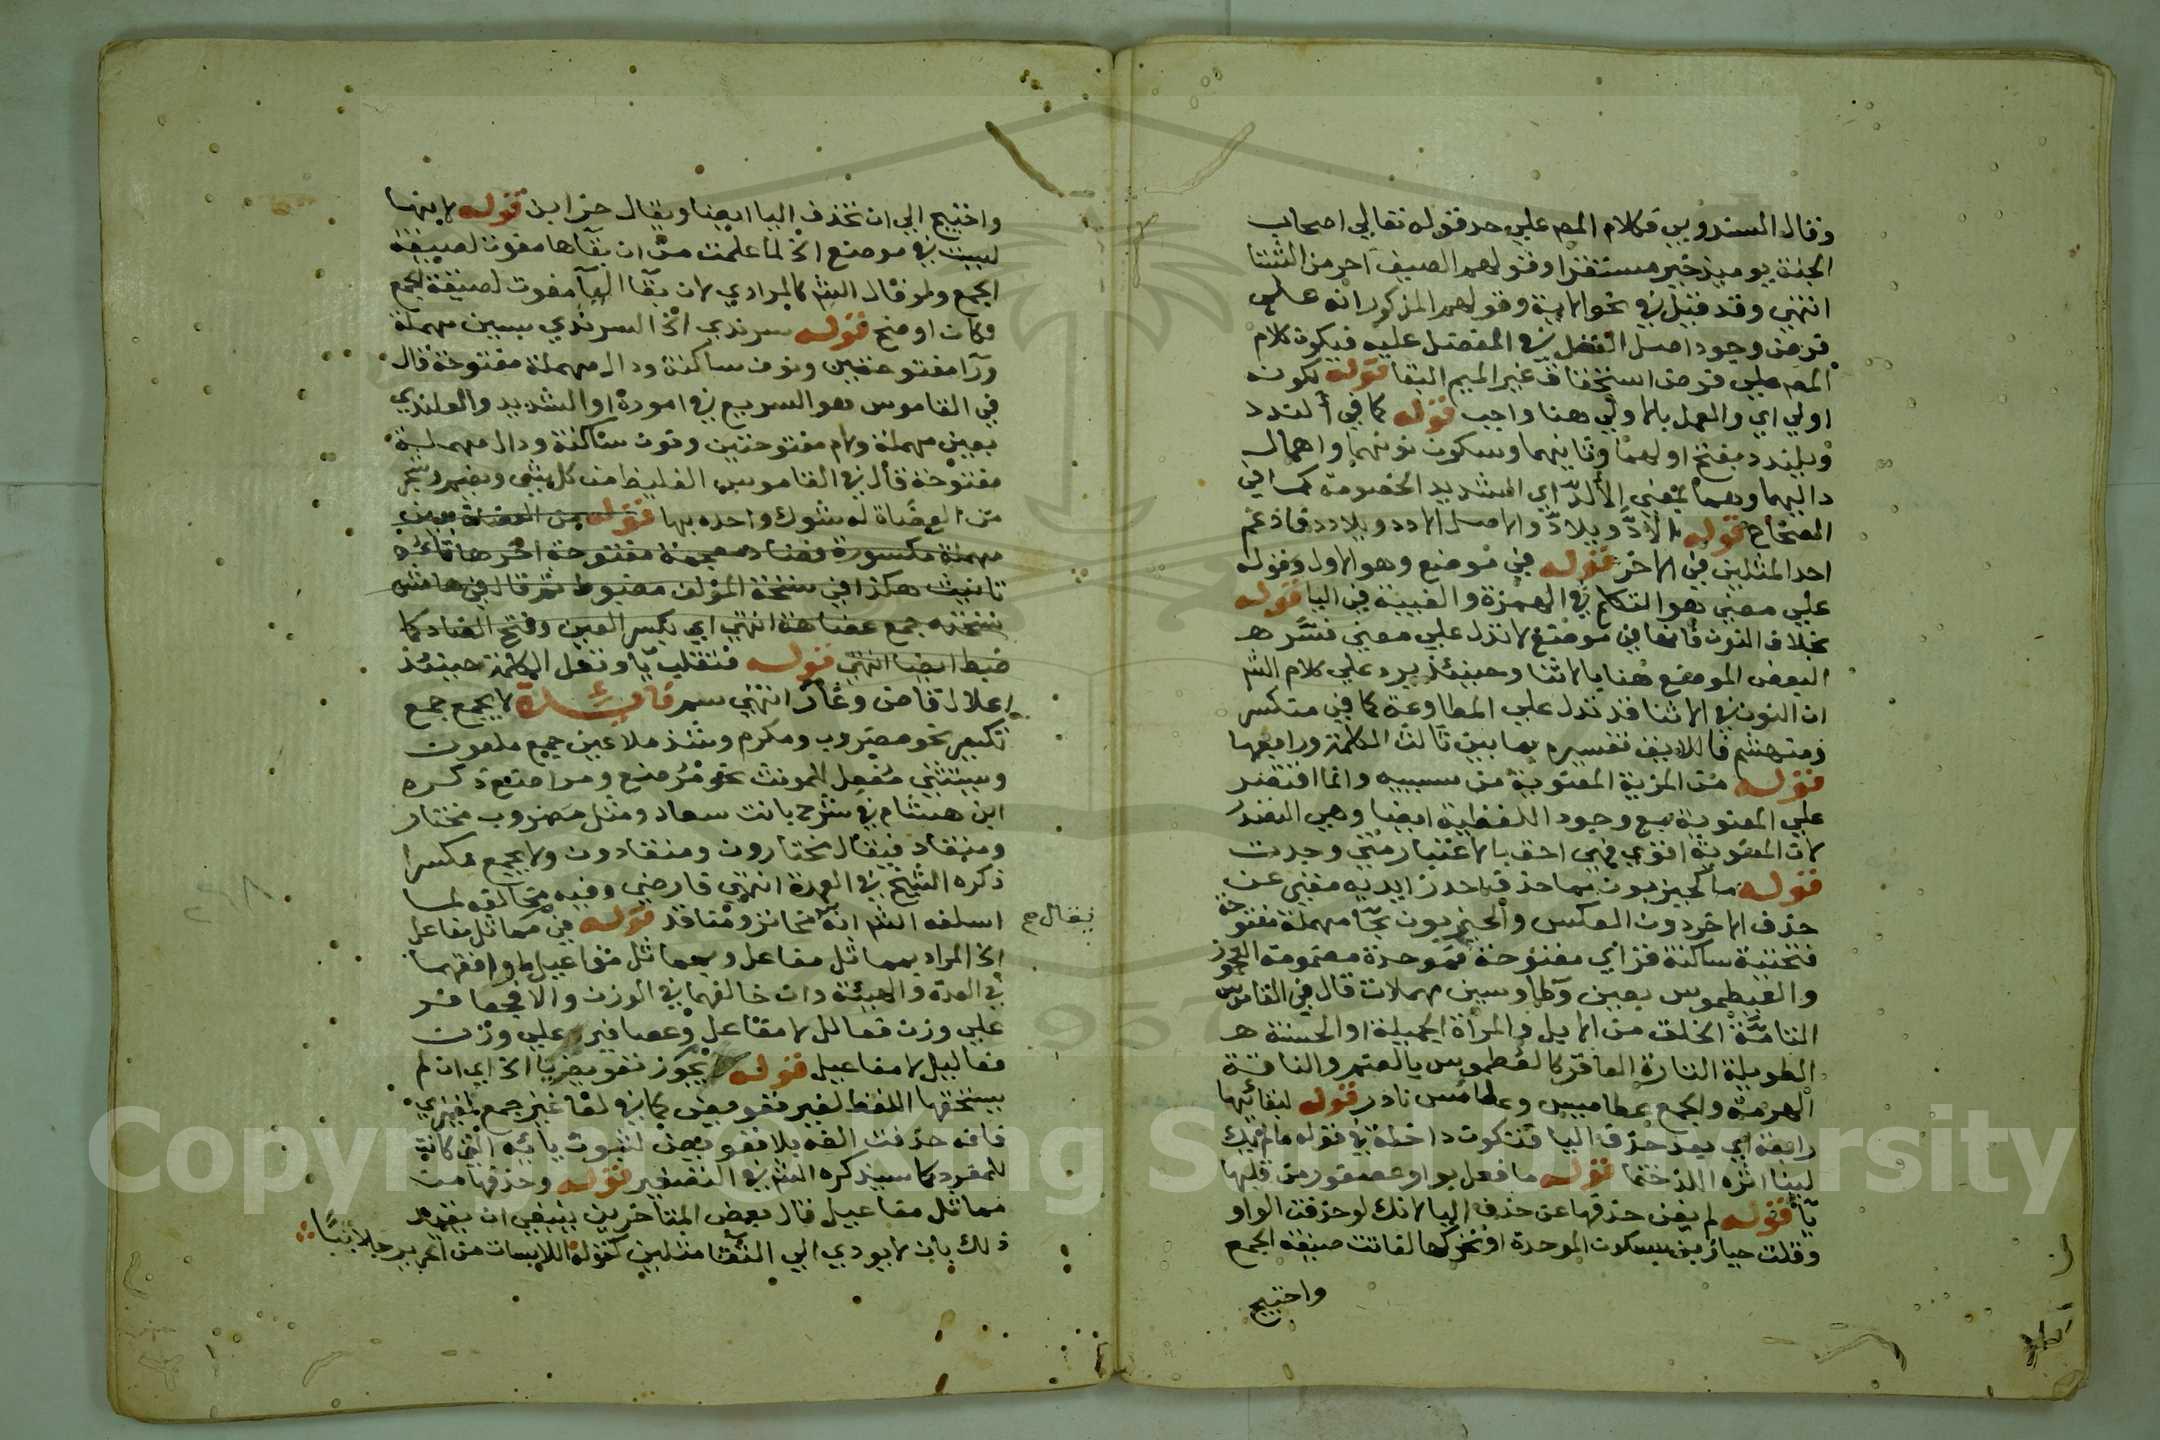 وقال السندوبي فكلام المص علي حد قوله تعالي اصحاب
الجنة يوميذ خير مستقرا وقولهم الصيف احر من الشتا
انتهي وقد قيل في نحو الاية وقولهم المذكور انه علي
فرض وجود اصل الفعل في المفضل عليه فيكون كلام
المص علي فرض استحقاق غير الميم البقا قوله لكونه
اولي اي والعمل بالاولي هنا واجب قوله كما في ألندد
ويلندد بفتح اولهما وثانيهما وسكون نونهما واهمال
داليهما وهما بمعني الألد اي الشديد الخصومة كما في
الصحاح قوله الادّ ويلادّ والاصل الادد ويلادد فادغم
احد المثلين في الاخر قوله في موضع وهو الاول وقوله
علي معني هو التكلم في الهمزة والغيبة في اليا قوله
بخلاف النون فانها في موضع لا تدل علي معني فسر هـ
البعض الموضع هنا بالاثنا وحينئذ يرد علي كلام الش
ان النون في الاثنا قد تدل علي المطاوعة كما في متكسر
ومنهشم فاللايق تفسيره بما بين ثالث الكلمة ورابعها
قوله من المزية المعنوية من سببيه وانما اقتصر
علي المعنوية مع وجود اللفظية ايضا وهي التصدر
لان المعنوية اقوي فهي احق بالاعتبار متي وجدت
قوله ما كحيزبون مما حذف احد زايديه مغني عن
حذف الاخر دون العكس والحيزبون بحا مهملة مفتوحة
فتحتية ساكنة فزاي مفتوحة فموحدة مضمومة العجوز
والغيطموس بعين وطا وسين مهملات قال في القاموس
التامة الخلق من الابل والمرأة الجميلة او الحسنة هـ
الطويلة التارة العاقر كالعطموس بالضم والناقة
الهرمة والجمع عطاميس وعطامس نادر قوله لبقائها
رابعة اي بعد حذف اليا فتكون داخلة في قوله ما لم يك
لينا اثره اللذ ختما قوله ما فعل بواو عصفور من قلبها
يا قوله لم يغن حذفها عن حذف اليا لانك لو حذفت الواو
وقلت حيازبن بسكون الموحدة او تحركها لفاتت صيغة الجمع
واحتيج
واحتيج الي ان تحذف اليا ايضا ويقال حزابن قوله لانها
ليست في موضع الخ لما علمت من ان بقآها مفوت لصيغة
الجمع ولو قال الش كالمرادي لان بقآ اليآ مفوت لصيغة الجمع
لكان اوضح قوله سرندي الخ السرندي بسين مهملة
ورآ مفتوحتين ونون ساكنة ودال مهملة مفتوحة قال
في القاموس هو السريع في اموره او الشديد والعلندي
بعين مهملة ولام مفتوحتين ونون ساكنة ودال مهملة
مفتوحة قال في القاموس الغليظ من كل شي ويضم وشجر
من العضاة له شوك واحده بها قوله من العضاة بعين
مهملة مكسورة وضاد معجمة مفتوحة اخرها تاء
تانيث هكذا في نسخة المؤلف مضبوط ثم قال في هامش
نسخته جمع عضاهة انتهي اي بكسر العين وفتح الضاد كما
ضبط ايضا انتهي قوله فتقلب يآ وتعل الكلمة حينئذ
اعلال قاض وغاز انتهي سم فائدة لا يجمع جمع
تكسير نحو مضروب ومكرم وشذ ملاعين جمع ملعون
ويستثني مُفعِل للمونث نحو مُرضع ومراضع ذكره
ابن هشام في شرح بانت سعاد ومثل مضروب مختار
ومنقاد فيقال مختارون ومنقادون ولا يجمع مكسرا
ذكره الشيخ في العمدة انتهي فارضي وفيه مخالفة لما
اسلفه الش انه مخاتر ومناقد قوله في مماثل مفاعل
الخ المراد بمماثل مفاعل وبمماثل مفاعيل ما وافقهما
في العدة والهيئة وان خالفهما في الوزن والا فجعافر
علي وزن فعالل لا مفاعل وعصافير علي وزن
فعاليل لا مفاعيل قوله يجوز تعويضه يا الخ اي ان لم
يستحقها اللفظ لغير تعويض كما في لغا غير جمع لغيزي
فانه حذفت الفه بلا تعويض لثبوت يائه التي كانت
للمفرد كما سيذكره الش في التصغير قوله وحذفها من
مماثل مفاعيل قال بعض المتاخرين ينبغي ان يقيد
ذلك بان لا يودي الي التقا مثلين كقوله اللابسات من الحرير جلابيبا
يقال صح